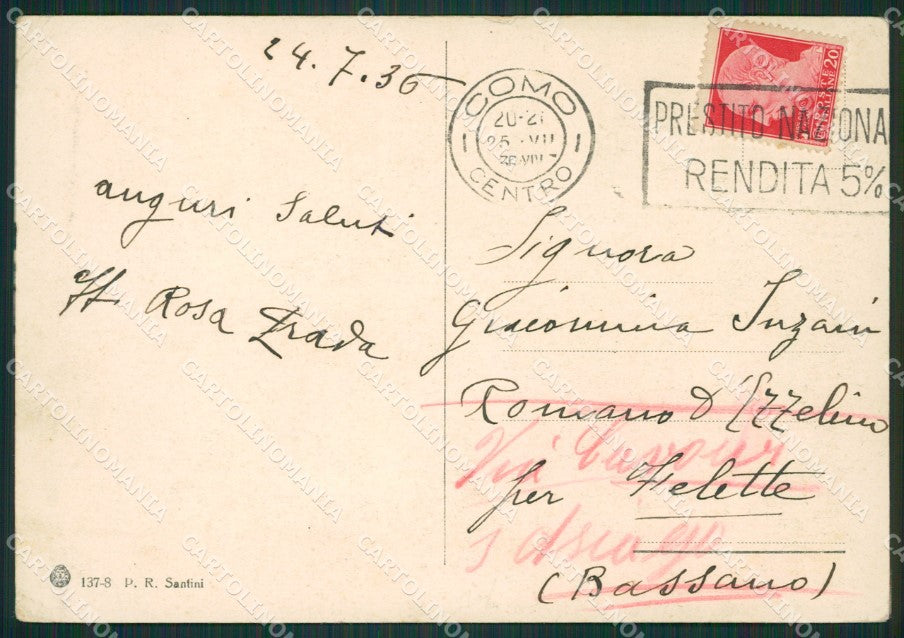 24.7.36
auguri saluti
Rosa Prada
COMO
20-21
25 VII
CENTRO
POSTE ITALIANE
20
PRESTITO NAZIONA
RENDITA 5%
Signora
Giacomina
Romano d'Ezzelino
Via Cavour
per Felette
Asiago
(Bassano)
137-8 P. R. Santini
CARTOLINOMANIA